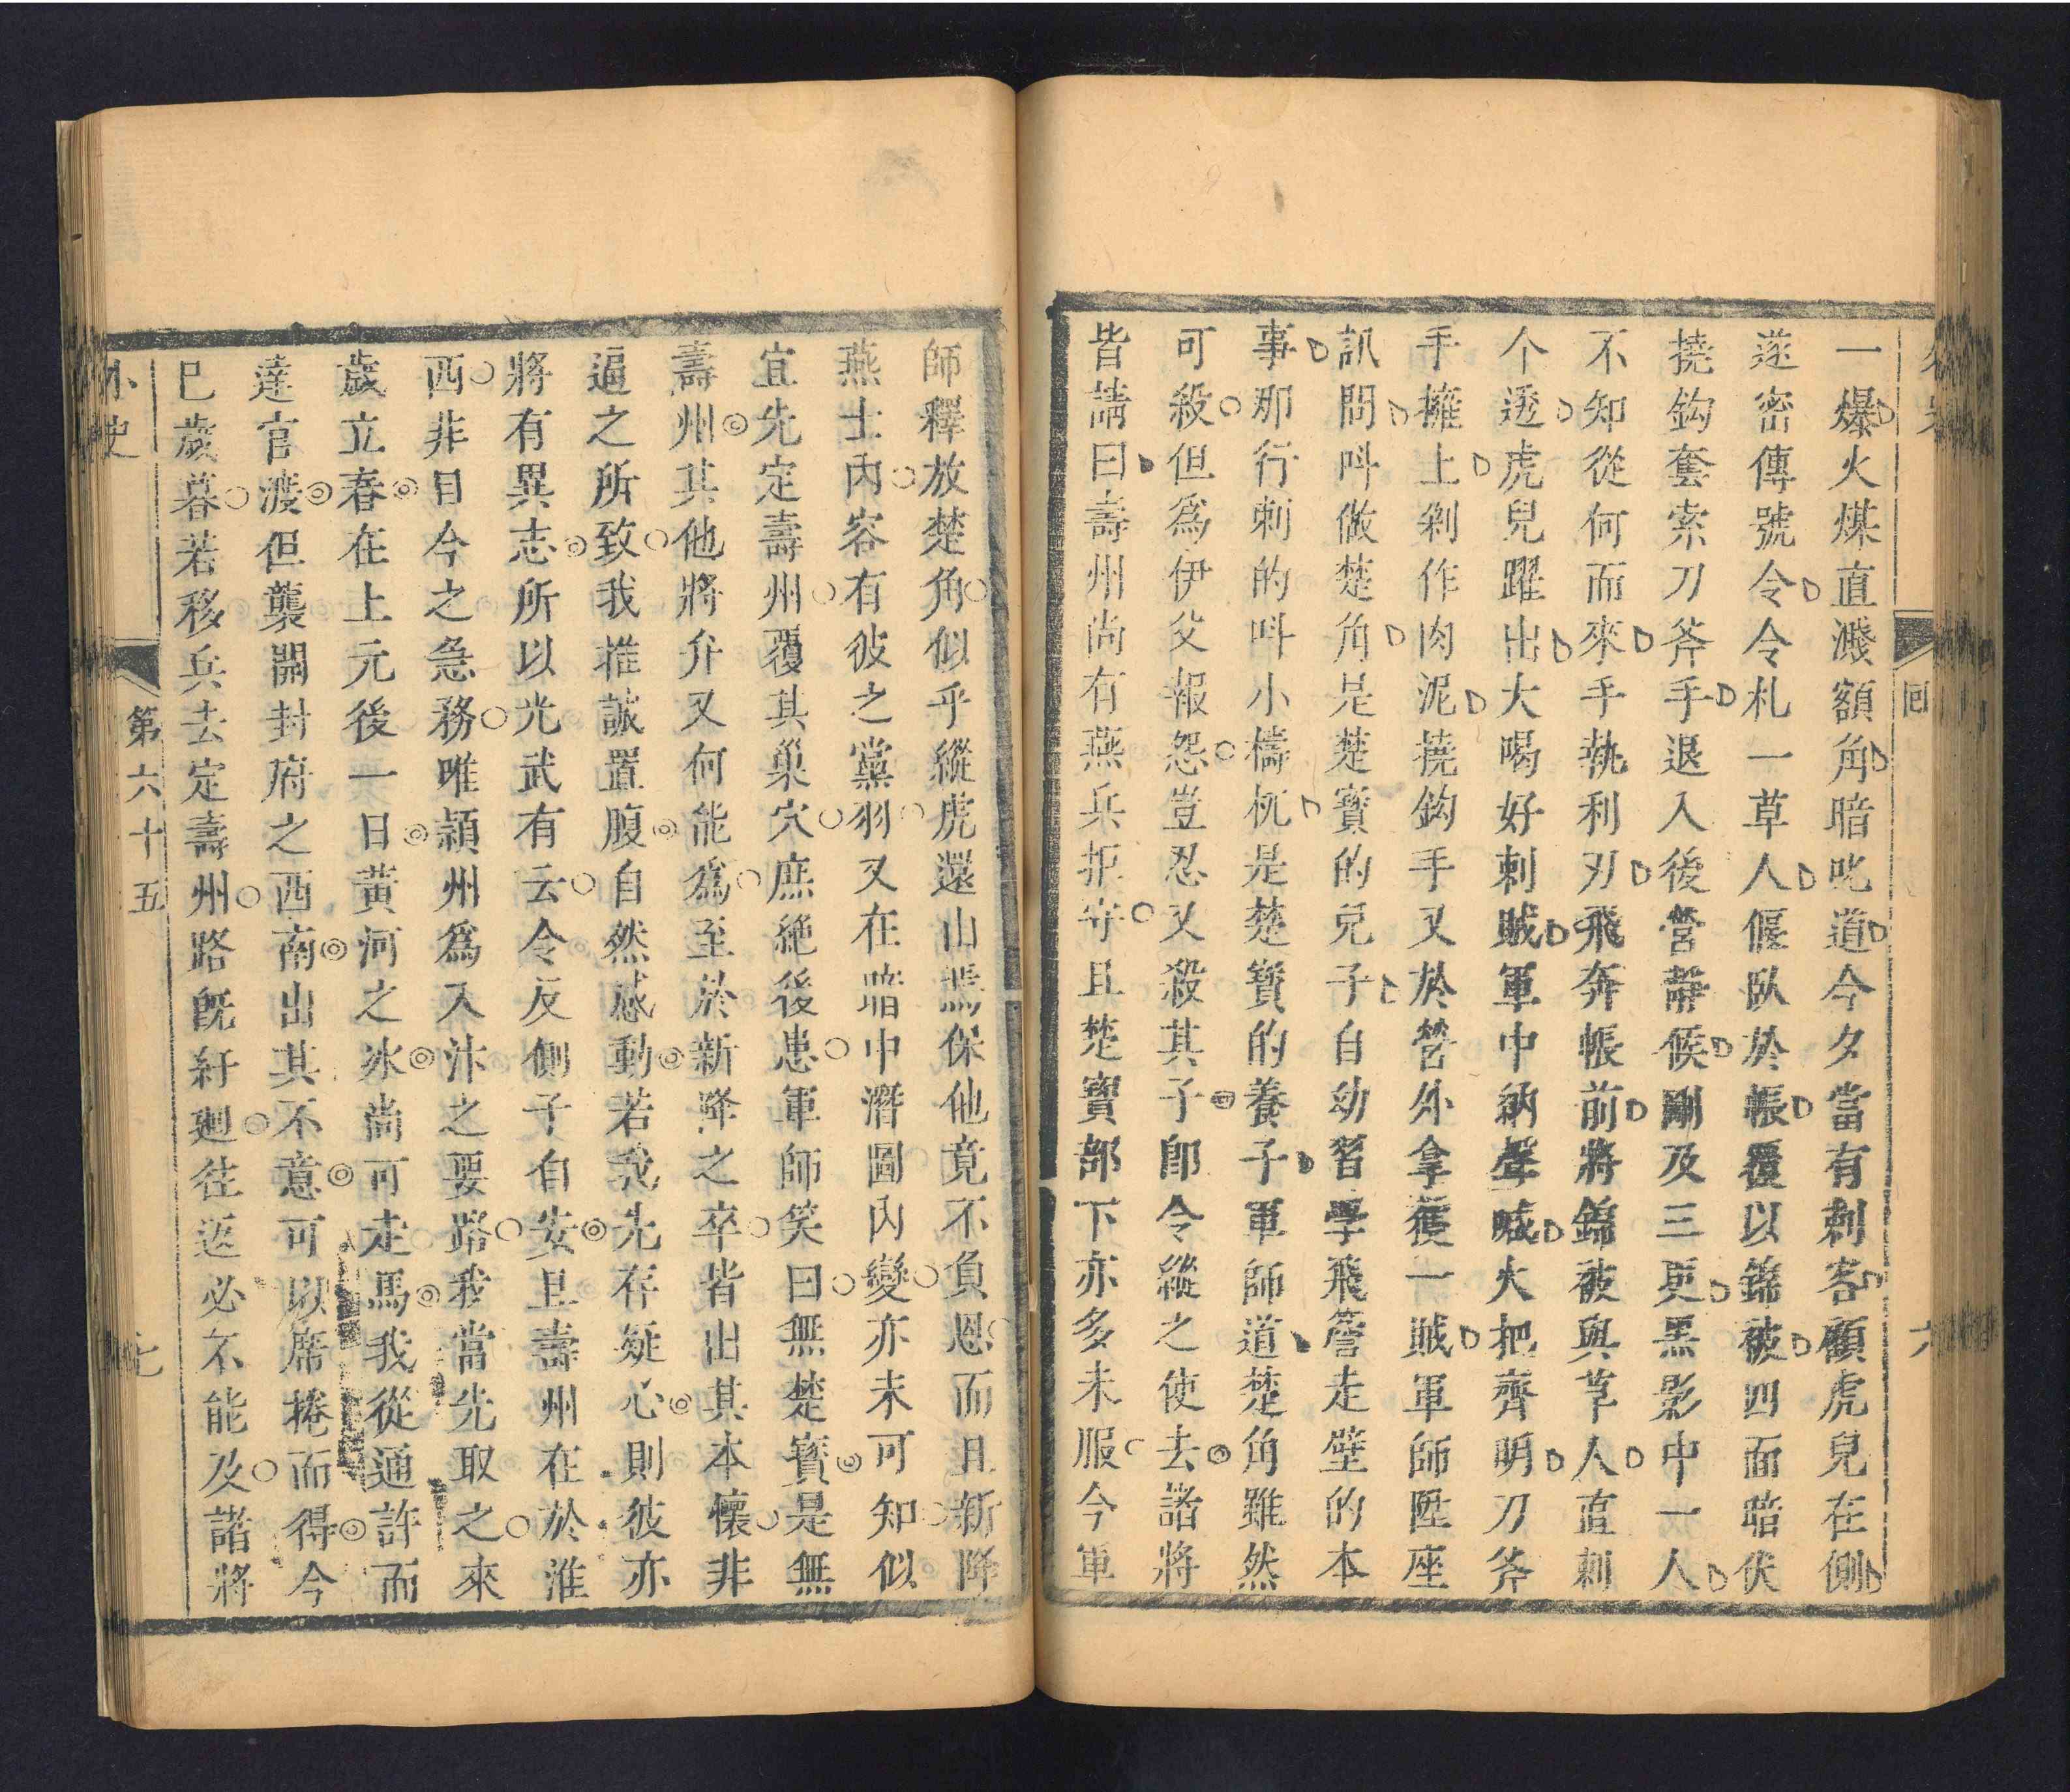 一爆火煤直濺額角暗叱道今夕當有刺客顧虎兒在側
遂密傳號令令札一草人偃臥於帳覆以錦被四面暗伏
撓鈎套索刀斧手退入後營靜候剛及三更黑影中一人
不知從何而來手執利刃飛奔帳前將錦被與草人直刺
个透虎兒躍出大喝好刺賊軍中納聲喊火把齊明刀斧
手擁上剁作肉泥撓鈎手又於營外拿獲一賊軍師陞座
訊問呌做楚角是楚寶的兒子自幼習學飛簷走壁的本
事那行刺的呌小檮杌是楚寶的養子軍師道楚角雖然
可殺但爲伊父報怨豈忍又殺其子即令縱之使去諸將
皆請曰壽州尚有燕兵拒守且楚寶部下亦多未服今軍
回
六
師釋放楚角似乎縱虎還山焉保他竟不負恩而且新降
燕士內容有彼之黨羽又在暗中潛圖內變亦未可知似
宜先定壽州覆其巢穴庶絶後患軍師笑曰無楚寶是無
壽州其他將弁又何能爲至於新降之卒皆出其本懷非
逼之所致我推誠置腹自然感動若我先存疑心則彼亦
將有異志所以光武有云令反側子自安且壽州在於淮
西非目今之急務唯潁州爲入汴之要路我當先取之來
歲立春在上元後一日黃河之冰尚可走馬我從通許而
達官渡但襲開封府之西南出其不意可以席捲而得今
巳歲暮若移兵去定壽州路旣紆廻往返必不能及諸將
外史
第六十五
七